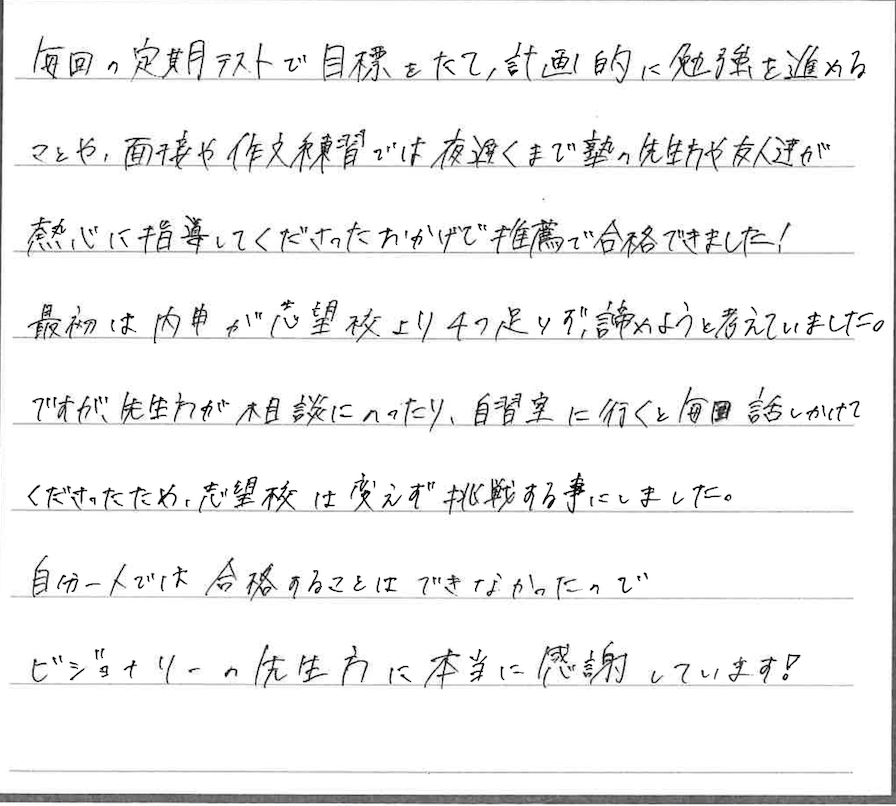 毎回の定期テストで目標をたて、計画的に勉強を進める
ことや、面接や作文練習では夜遅くまで塾の先生方や友人達が
熱心に指導してくださったおかげで推薦で合格できました!
最初は内申が志望校より4つ足りず、諦めようと考えていました。
ですが、先生方が相談にのったり、自習室に行くと毎回話しかけて
くださったため、志望校は変えず挑戦する事にしました。
自分一人では合格することはできなかったので
ビジョナリーの先生方に本当に感謝しています!